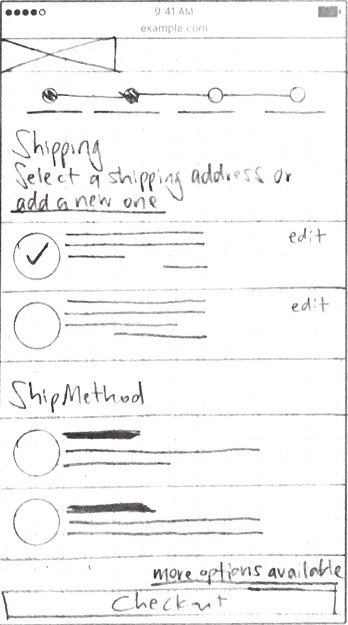 9:41 AM
example.com
Shipping
Select a shipping address or
add a new one
edit
edit
Ship Method
more options available
Checkout